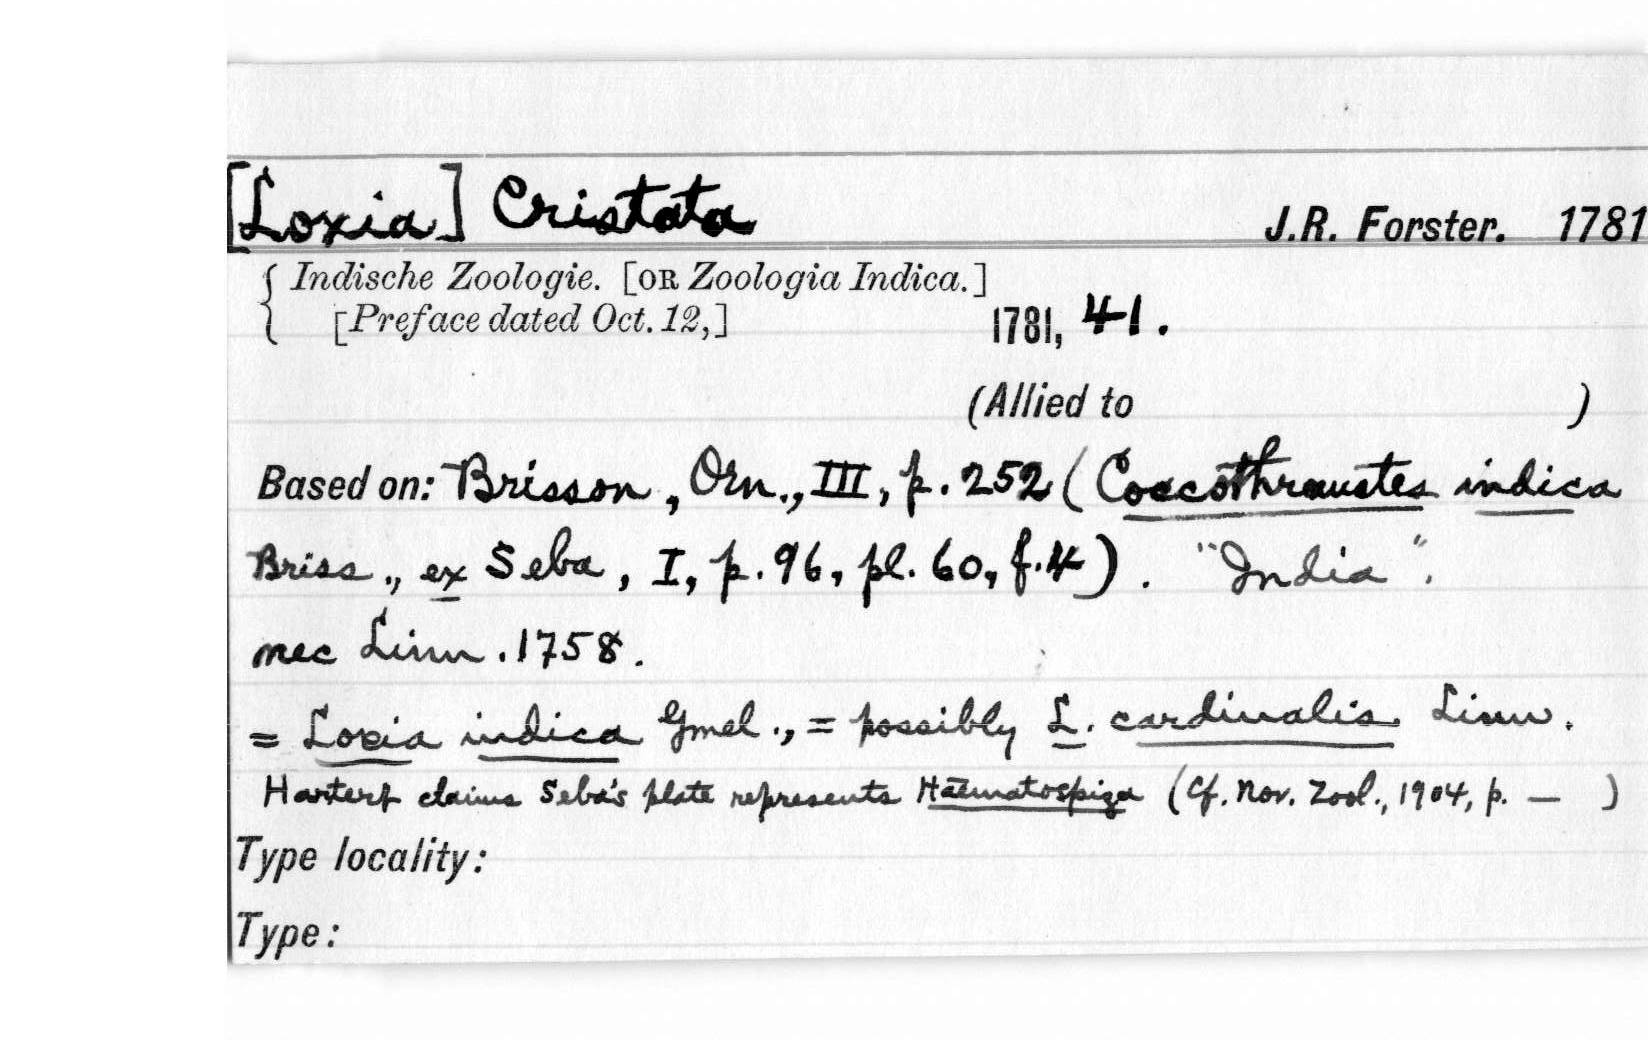 [Loxia] Cristata J.R. Forster. 1781
{ Indische Zoologie. [OR Zoologia Indica.]
[Preface dated Oct. 12,] 1781, 41.
(Allied to )
Based on: Brisson, Orn., III, p. 252 (Coccothraustes indica
Briss., ex Seba, I, p. 96, pl. 60, f. 4). "India".
nec Linn. 1758.
= Loxia indica Gmel., = possibly L. cardinalis Linn.
Hartert claims Seba's plate represents Hæmatospiza (Cf. Nov. Zool., 1904, p. — )
Type locality:
Type: